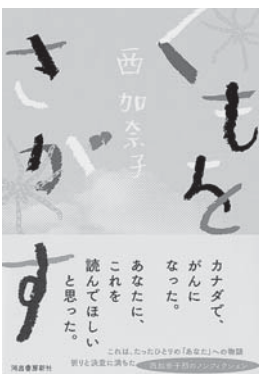 くもを
さがす
西 加奈子
カナダで、
がんに
なった。
あなたに、
これを
読んでほしい
と思った。
これは、たったひとりの「あなた」への物語
祈りと決意に満ちた、西加奈子初のノンフィクション
河出書房新社